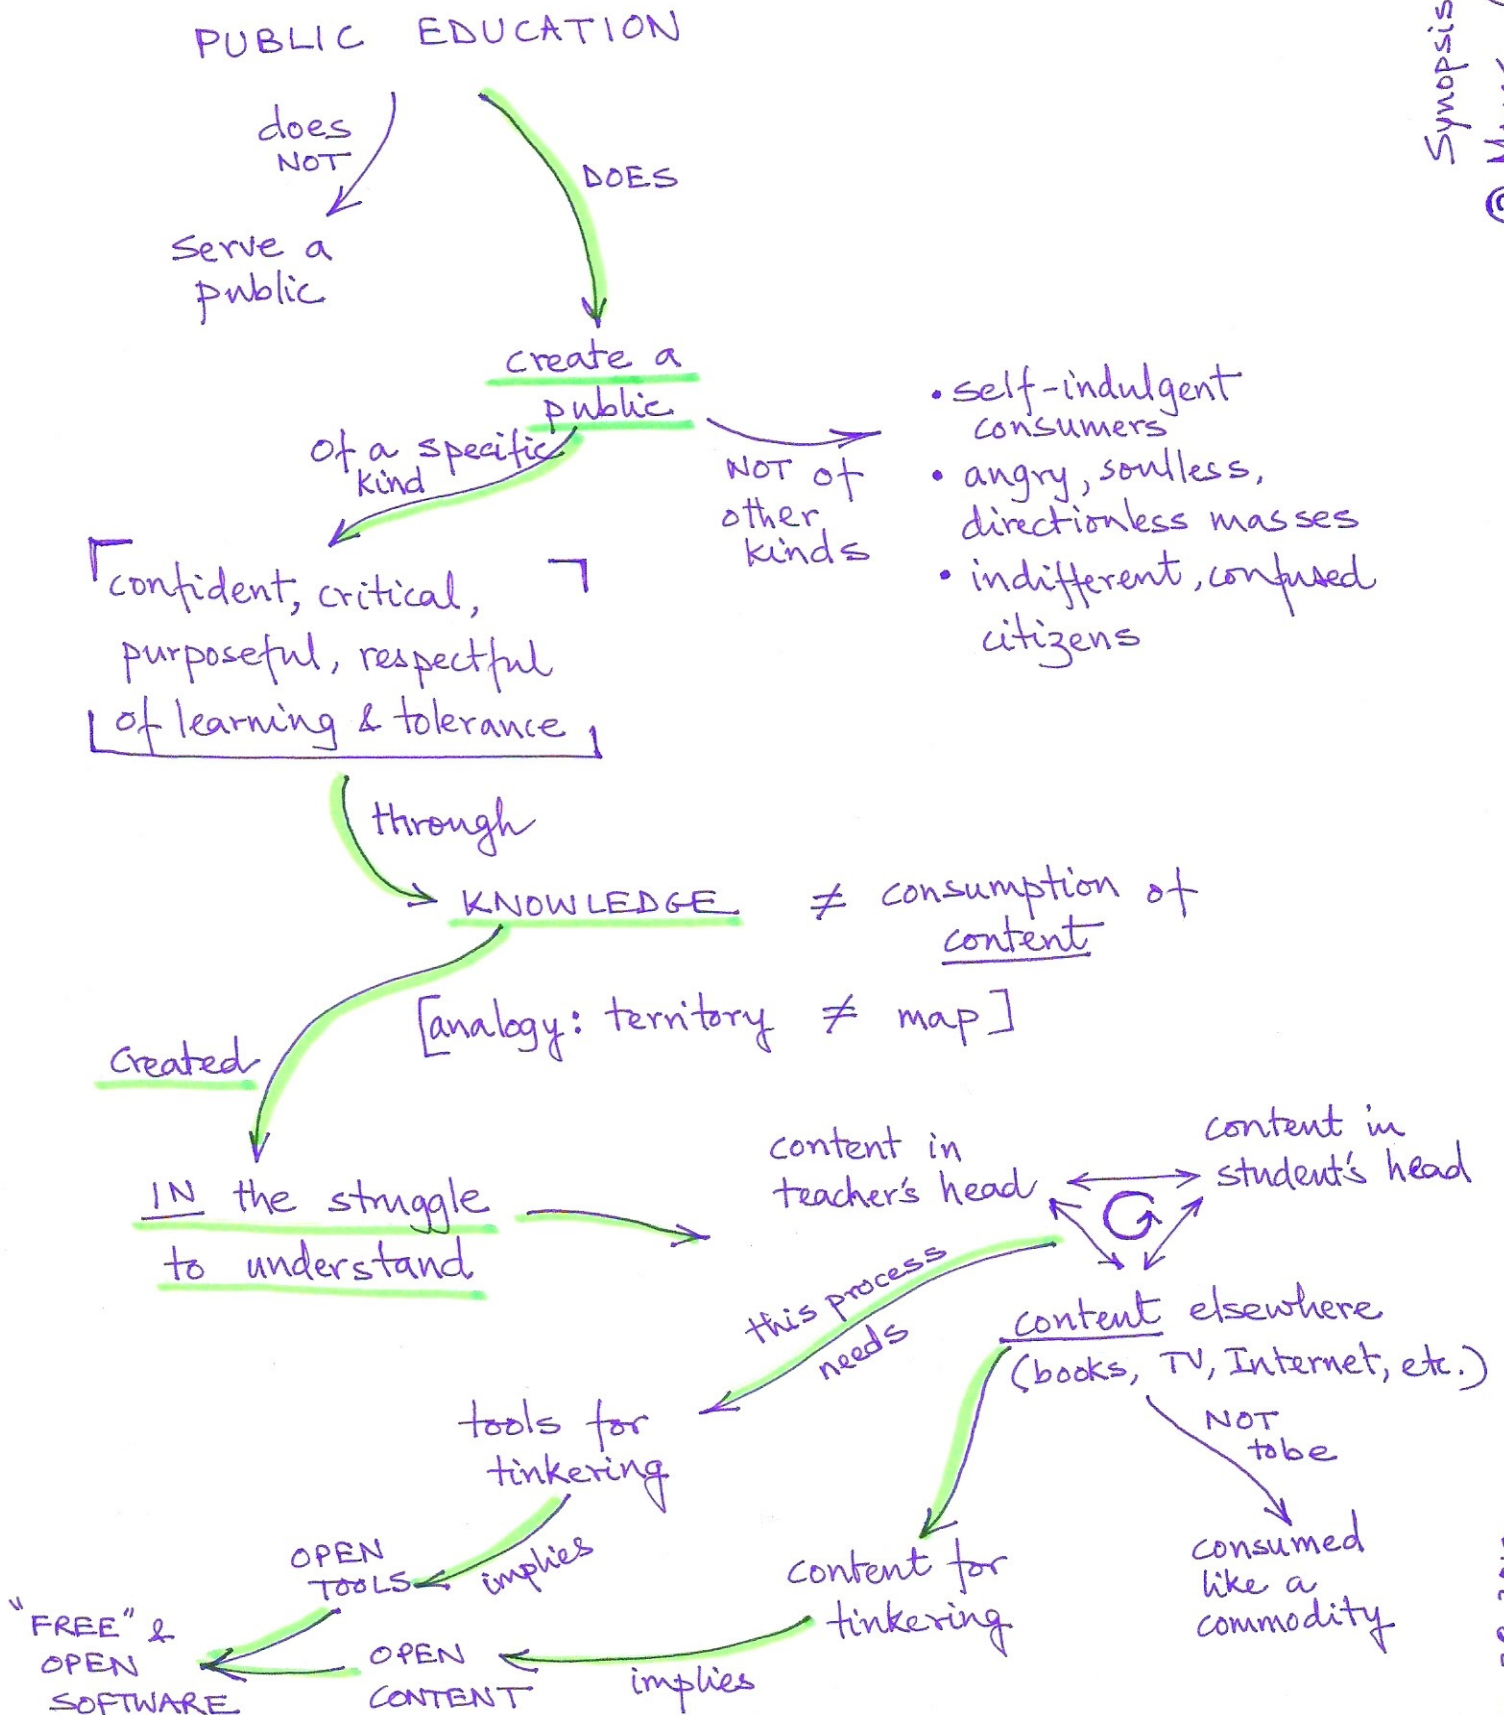 PUBLIC EDUCATION
does
NOT
DOES
serve a
public
create a
public
of a specific
kind
NOT of
other
kinds
• self-indulgent
consumers
• angry, soulless,
directionless masses
• indifferent, confused
citizens
confident, critical,
purposeful, respectful
of learning & tolerance
through
KNOWLEDGE ≠ consumption of
content
[analogy: territory ≠ map]
created
IN the struggle
to understand
content in
teacher's head
content in
student's head
content elsewhere
(books, TV, Internet, etc.)
this process
needs
tools for
tinkering
NOT
to be
consumed
like a
commodity
content for
tinkering
implies
OPEN
TOOLS
implies
OPEN
CONTENT
"FREE" &
OPEN
SOFTWARE
Synopsis